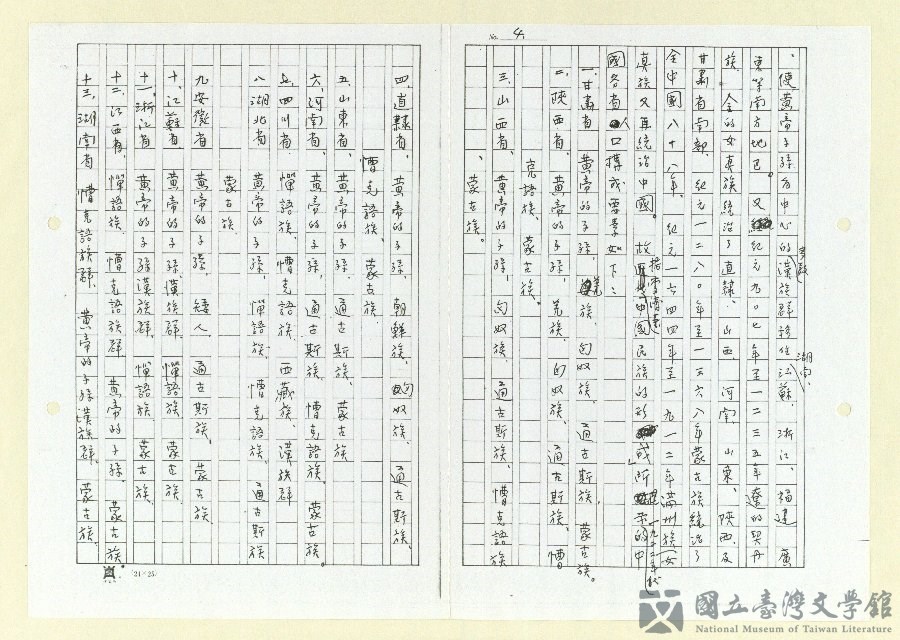 No. 4
、使黃帝子孫为中心的漢族群移住江蘇、湖南、浙江、福建、廣
東等南方地已。又紀元九0七年至一二三五年奪的契丹
族、金的女真族統治了直隸、山西、河南、山東、陝西、及
甘肅省南部、紀元一二八0年至一三六八年蒙古族統治了
全中國八十八年、紀元一六四四年至一九一二年滿州族(女
真族又再統治中國。故中國民族的形成」所示的一九二年代中
國各省人口構成要素如下:
一、甘肅省 黃帝的子孫、羌族、匈奴族、通古斯族、蒙古族。
二、陝西省、黃帝的子孫、羌族、匈奴族、通古斯族、慒
克語族、蒙古族。
三、山西省、黃帝的子孫、匈奴族、通古斯族、慒克語族
、蒙古族。
四、直隸省、黃帝的子孫、朝鮮族、匈奴族、通古斯族、
慒克語族、蒙古族。
五、山東省、黃帝的子孫、通古斯族、蒙古族
六、河南省、黃帝的子孫、通古斯族、慒克語族、蒙古族。
七、四川省、憚語族、慒克語族、西藏族、漢族群
八、湖北省 黃帝的子孫、憚語族、慒克語族、通古斯族
蒙古族、
九安徽省 黃帝的子孫、矮人、通古斯族、蒙古族、
十、江蘇省、黃帝的子孫、漢族群、憚語族、蒙古族
十一、浙江省 黃帝的子孫漢族群、憚語族、蒙古族、
十二、江西省、憚語族、慒克語族群、黃帝的子孫、蒙古族。
十三、湖南省 慒克語族群、黃帝的子孫漢族群、蒙古族、
(21×25)
國立臺灣文學館
National Museum of Taiwan Literature